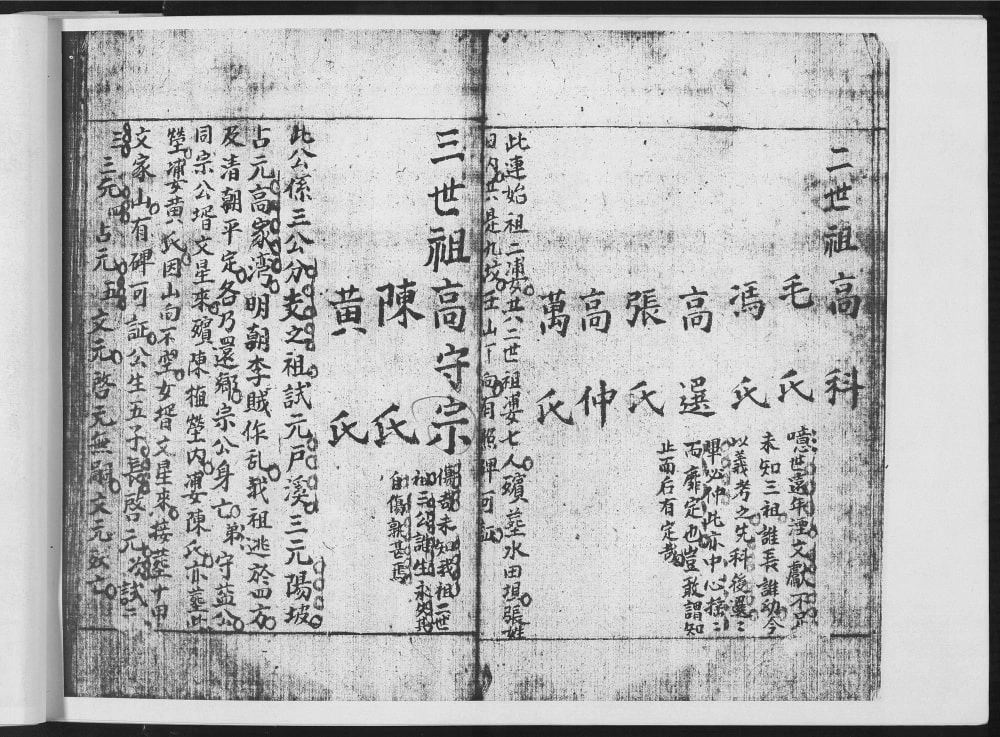 二世祖高科
毛氏
馮氏
高選
張氏
高仲
萬氏
噫世遠年湮文獻不足
未知三祖誰長誰幼今
以義考之先科後選
畢必仲此亦中心揣
而靡定也豈敢謂知
止而后有定哉
此連始祖二婆共二世祖婆七人殯塟水田垻張姓
日內共是九坟 山下向有照碑可証
三世祖高守宗
陳氏
黃氏
傷哉未知我祖二世
祖三公誰生永矢其
自傷孰甚焉
此公係三公分支之祖試元戶溪三元陽坡
占元高家湾明朝李賊作乱我祖逃於四方
及清朝平定各乃還鄉宗公身亡弟守益公
同宗公壻文星來殯陳植塋內婆陳氏亦塟此
塋婆黃氏因山向不空女壻文星來接塟十甲
文家山有碑可証公生五子長啓元次試元
三三元四占元五文元啓元無嗣文元故亡